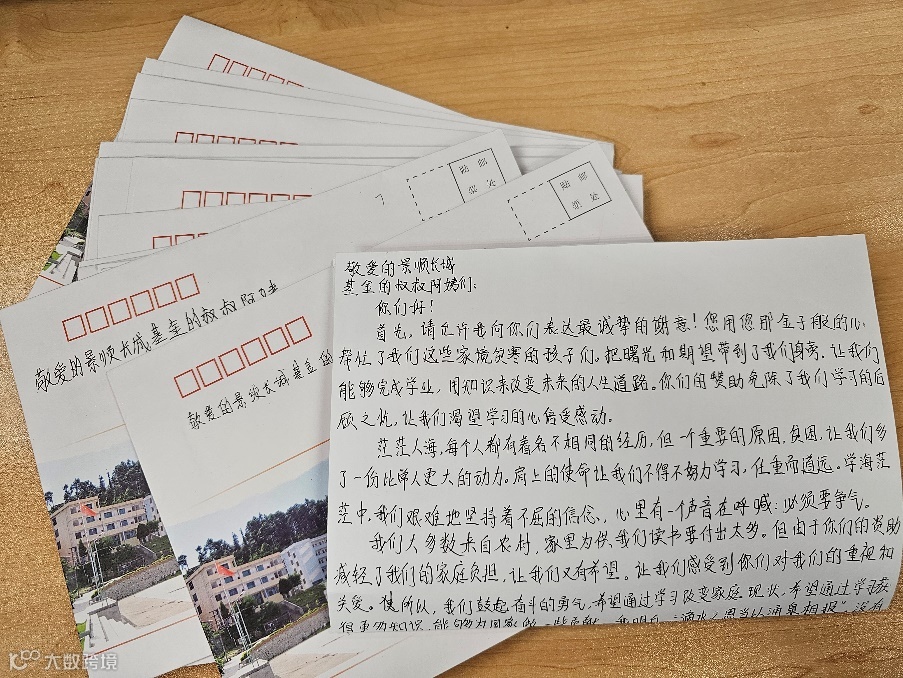 贴 邮
票 处
贴 邮
票 处
敬爱的景顺长城基金的叔叔阿姨
敬爱的景顺长城基金的
敬爱的景顺长城
基金的叔叔阿姨们:
你们好!
首先,请允许我向你们表达最诚挚的谢意!您用您那金子般的心
帮住了我们这些家境贫寒的孩子们。把曙光和期望带到了我们身旁,让我们
能够完成学业,用知识来改变未来的人生道路。你们的赞助免除了我们学习的后
顾之忧,让我们渴望学习的心倍受感动。
茫茫人海,每个人都有着名不相同的经历,但一个重要的原因,贫困,让我们多
了一份比常人更大的动力。肩上的使命让我们不得不努力学习,任重而道远。学海茫
茫中,我们艰难地坚持着不屈的信念,心里有一个声音在呼喊:必须要争气。
我们大多数来自农村,家里为供我们读书要付出太多。但由于你们的资助
减轻了我们的家庭负担,让我们又有希望。让我们感受到你们对我们的重视和
关爱。所以,我们鼓起奋斗的勇气,希望通过学习改变家庭现状,希望通过学习获
得更多知识,能够为国家做一些贡献。我明白,“滴水之恩当以涌泉相报”没有
大数跨境